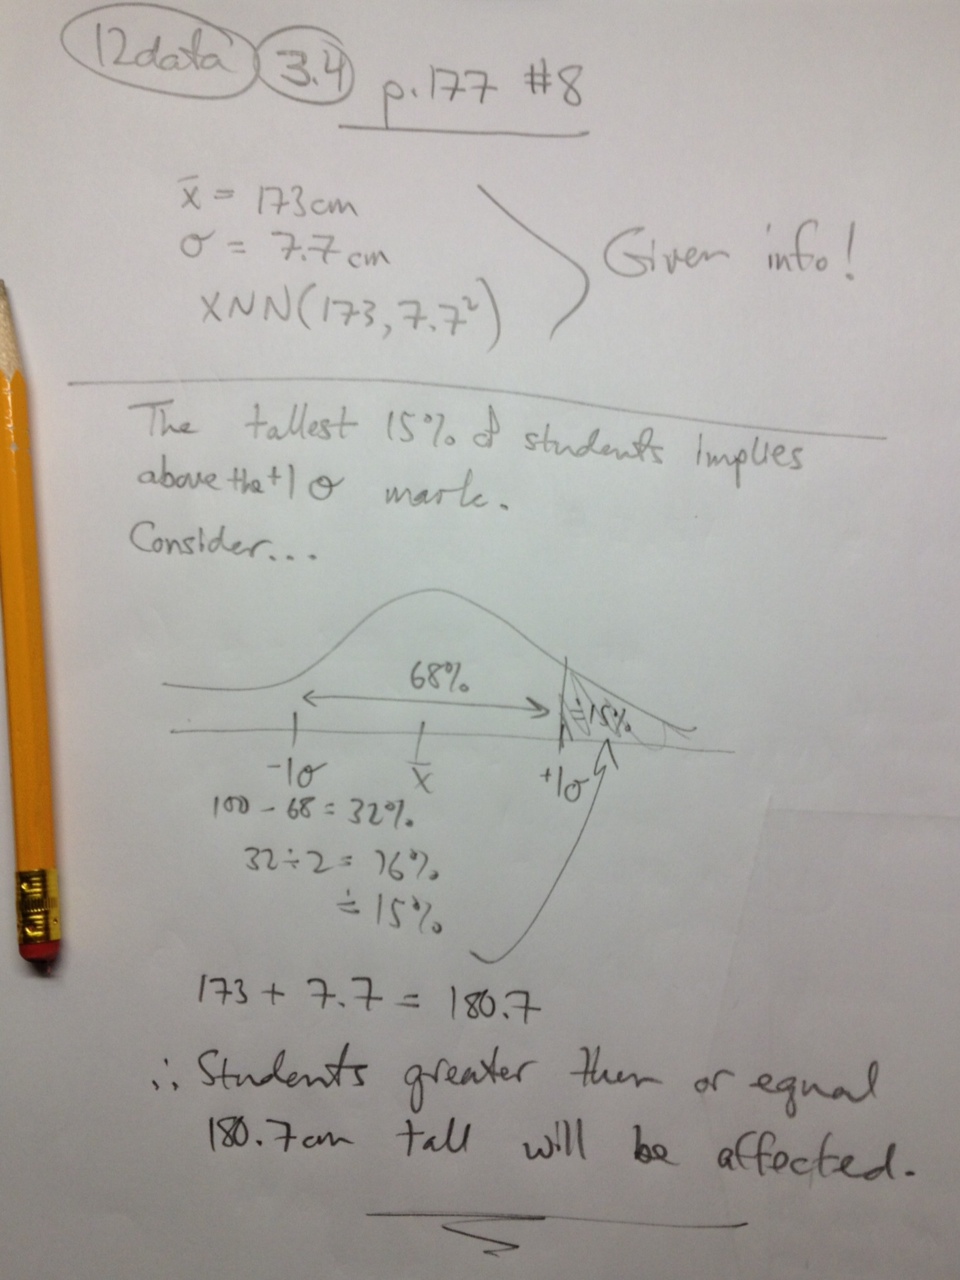 12data 3.4 p.177 #8
x̄ = 173cm
σ = 7.7cm
X~N(173, 7.7²)
Given info!
The tallest 15% of students implies
above the +1σ mark.
Consider...
68%
≐15%
-1σ x̄ +1σ
100 - 68 = 32%
32 ÷ 2 = 16%
≐ 15%
173 + 7.7 = 180.7
∴ Students greater then or equal
180.7cm tall will be affected.